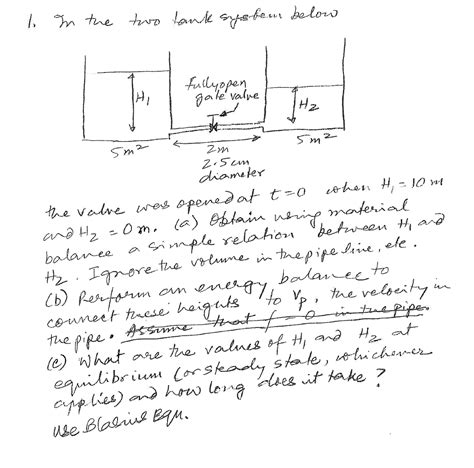 1. In the two tank system below
Fully open
gate valve
H1
H2
5m²
2m
5m²
2.5cm
diameter
the valve was opened at t=0 when H1 = 10 m
and H2 = 0 m. (a) Obtain using material
balance a simple relation between H1 and
H2. Ignore the volume in the pipe line, etc.
(b) Perform an energy balance to
connect these heights to Vp, the velocity in
the pipe. Assume that f = 0 in the pipe.
(c) What are the values of H1 and H2 at
equilibrium (or steady state, whichever
applies) and how long does it take?
Use Blasius Equ.